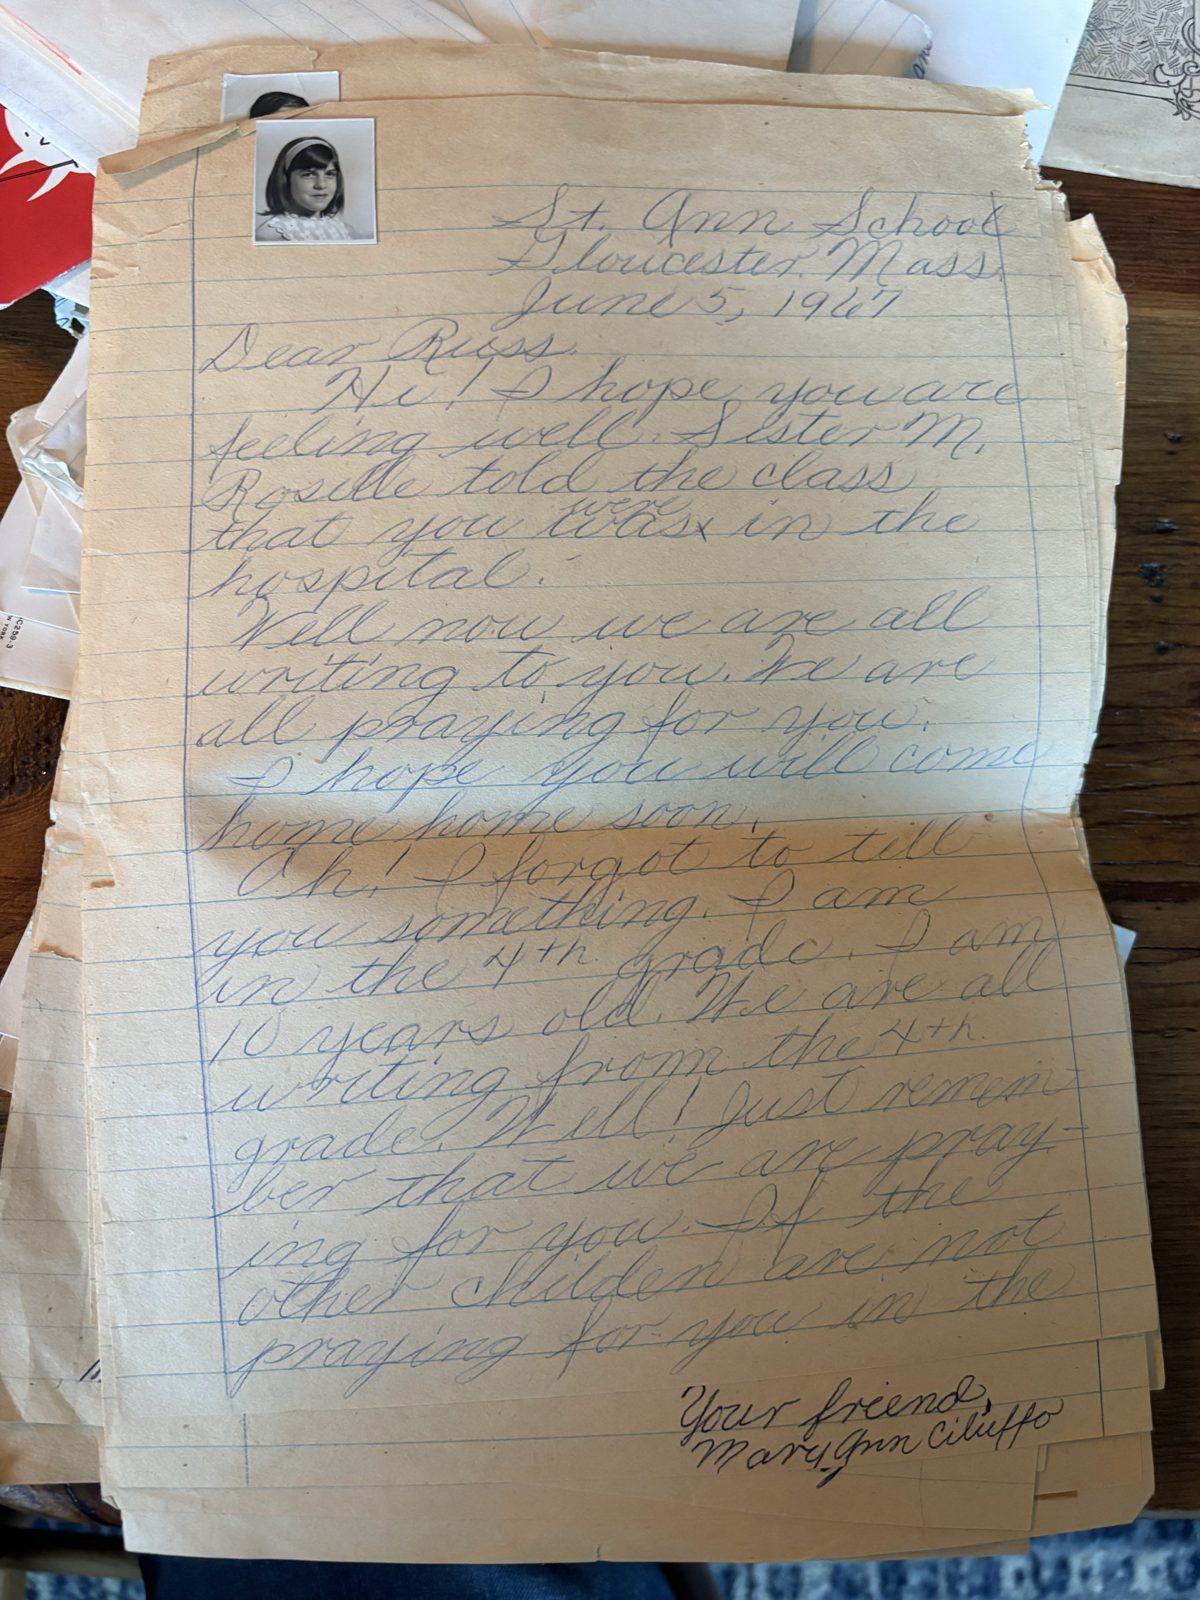 St. Ann School
Gloucester. Mass.
June 5, 1967
Dear Russ,
Hi! I hope you are
feeling well. Sister M.
Roselle told the class
that you were was in the
hospital.
Well now we are all
writing to you. We are
all praying for you.
I hope you will come
home home soon.
Oh! I forgot to till
you something. I am
in the 4th grade. I am
10 years old. We are all
writing from the 4th
grade. Well! Just remem-
ber that we are pray-
ing for you. If the
other childen are not
praying for you in the
Your friend,
Mary Ann Ciluffo
C259-3